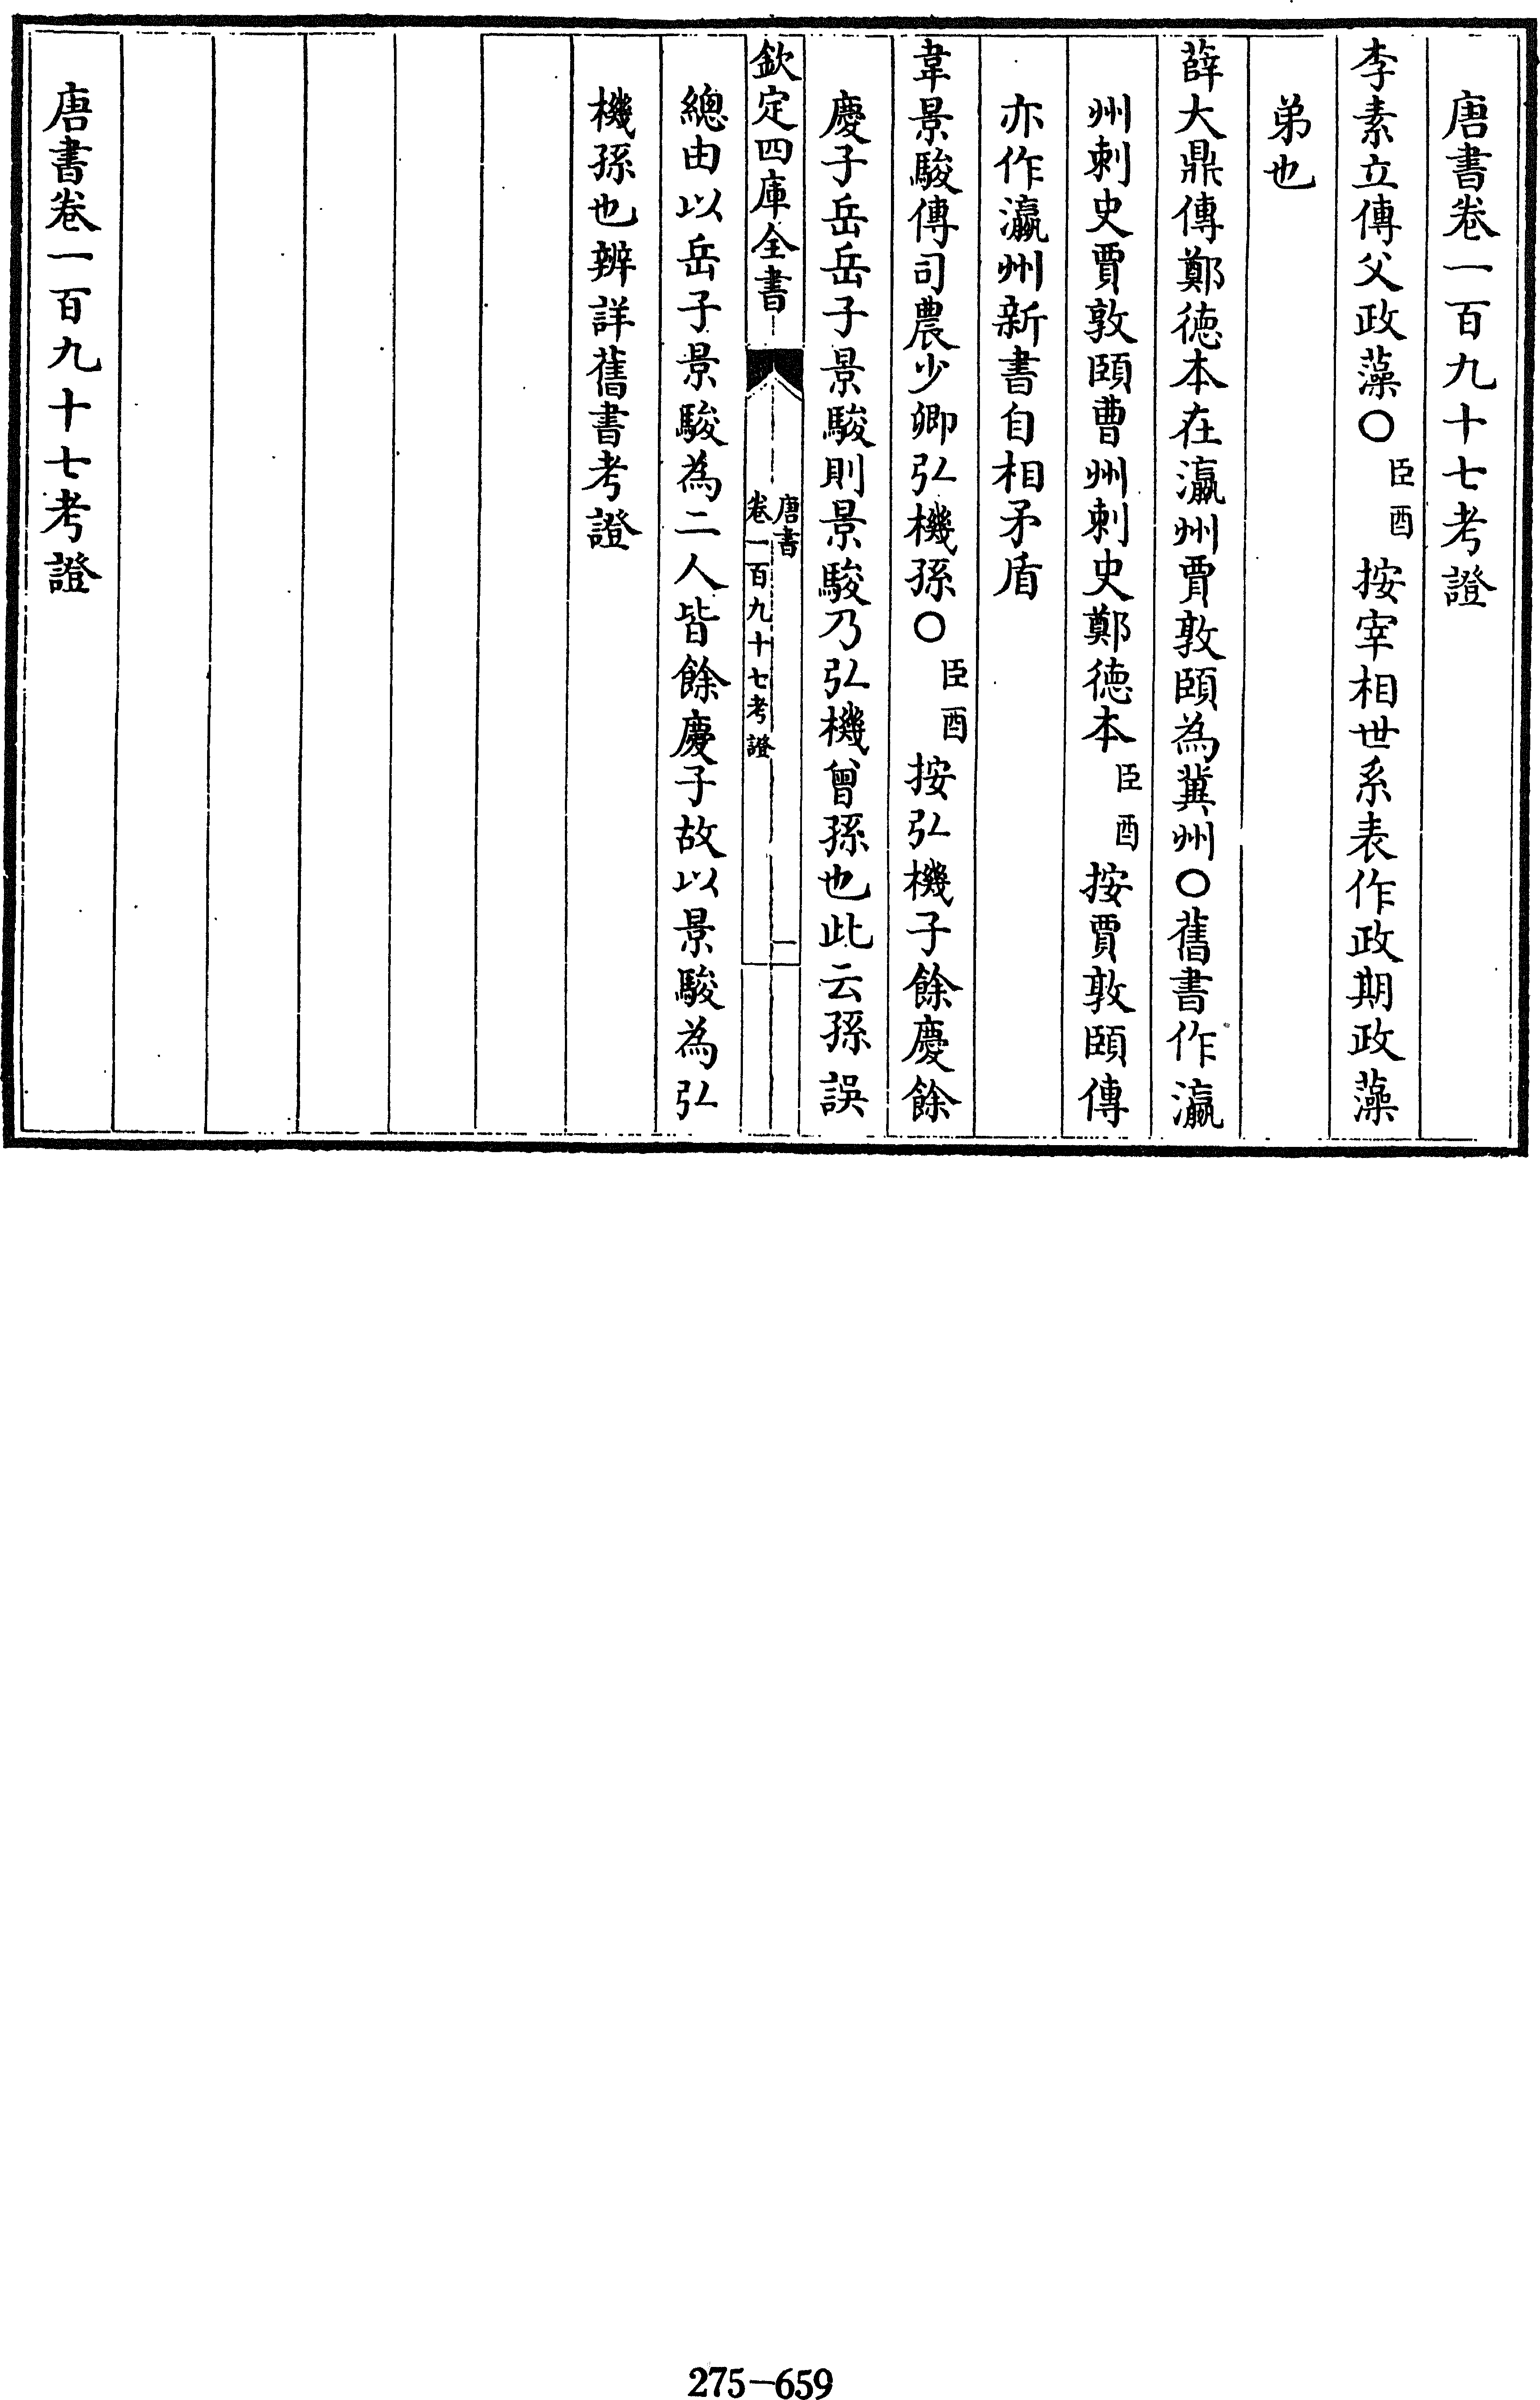 唐書卷一百九十七考證
李素立傳父政藻○臣酉按宰相世系表作政期政藻
弟也
薛大鼎傳鄭徳本在瀛州賈敦頤為冀州○舊書作瀛
州刺史賈敦頤曹州刺史鄭徳本臣酉按賈敦頤傳
亦作瀛州新書自相矛盾
韋景駿傳司農少卿弘機孫○臣酉按弘機子餘慶餘
慶子岳岳子景駿則景駿乃弘機曾孫也此云孫誤
欽定四庫全書
唐書
卷一百九十七考證
一
總由以岳子景駿為二人皆餘慶子故以景駿為弘
機孫也辨詳舊書考證
唐書卷一百九十七考證
275-659